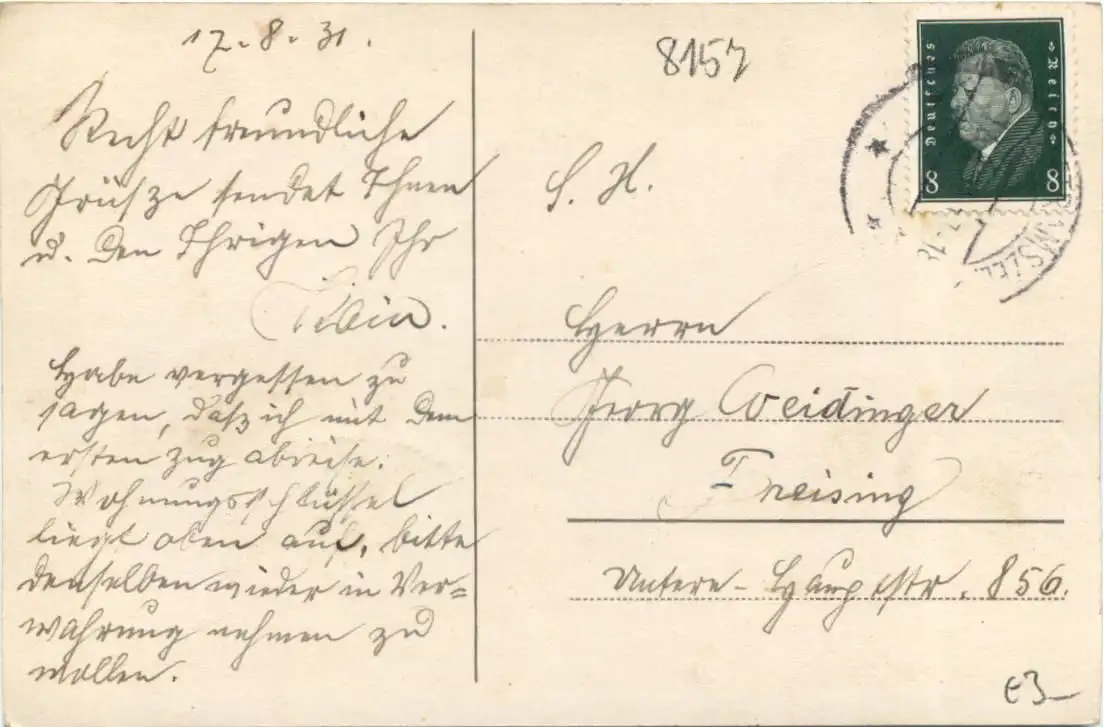 17.8.31.
Recht freundliche
Grüsze sendet Ihnen
u. den Ihrigen Ihr
Habe vergessen zu
sagen, daß ich mit dem
ersten Zug abreise.
Wohnungsschlüssel
liegt oben auf, bitte
denselben wieder in Ver=
wahrung nehmen zu
wollen.
8157
Deutsches Reich
8 8
S. H.
Herrn
Georg Weidinger
Freising
Untere-Hauptstr. 856.
€3-